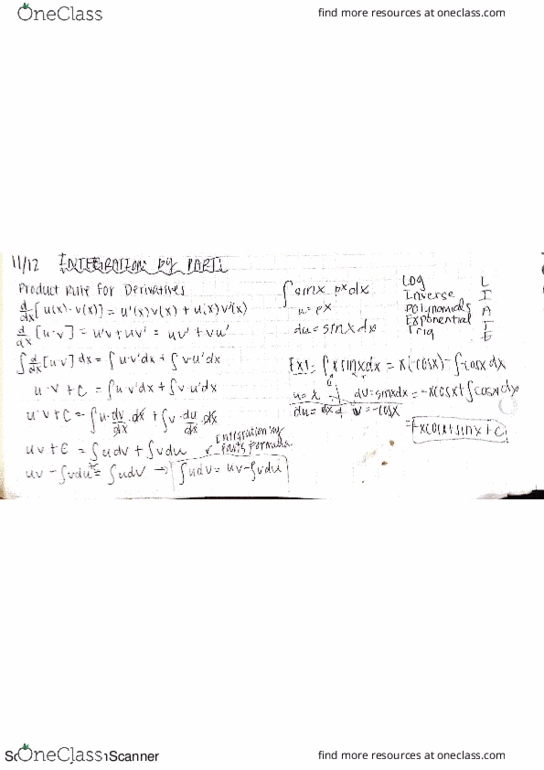 OneClass
find more resources at oneclass.com
11/12 INTEGRATION BY PARTS
Product Rule for Derivatives
d/dx [u(x)·v(x)] = u'(x)v(x) + u(x)v'(x)
d/dx [u·v] = u'v + uv' = uv' + vu'
∫ d/dx [u·v] dx = ∫ u·v'dx + ∫ v·u'dx
u·v + C = ∫ u·v'dx + ∫ v·u'dx
u·v + C = ∫ u·dv/dx·dx + ∫ v·du/dx·dx
uv + C = ∫ u dv + ∫ v du
Integration by Parts Formula
uv - ∫ v du = ∫ u dv → ∫ u dv = uv - ∫ v du
∫ sinx e^x dx
u = e^x
du = sinx dx
Log L
Inverse I
Polynomials A
Exponential T
Trig E
Ex1: ∫ x sinx dx = x(-cosx) - ∫ -cosx dx
u = x dv = sinx dx = -xcosx + ∫ cosx dx
du = dx v = -cosx
= -xcosx + sinx + C
OneClass
Scanner
find more resources at oneclass.com